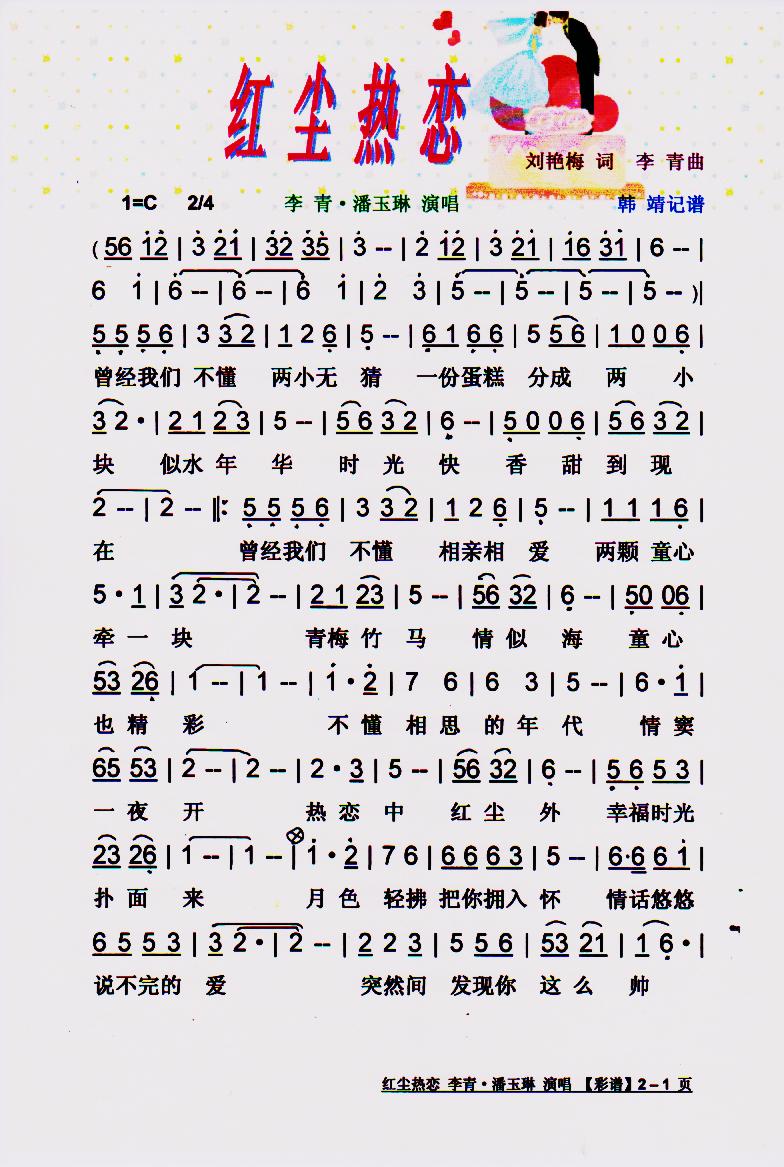 红尘热恋
刘艳梅 词 李 青曲
1=C 2/4 李 青·潘玉琳 演唱 韩 靖记谱
(56 12 | 3 21 | 32 35 | 3 -- | 2 12 | 3 21 | 16 31 | 6 -- |
6 1 | 6 -- | 6 -- | 6 1 | 2 3 | 5 -- | 5 -- | 5 -- | 5 -- )|
5 5 5 6 | 3 3 2 | 1 2 6 | 5 -- | 6 1 6 6 | 5 5 6 | 1 0 0 6 |
曾经我们 不懂 两小无 猜 一份蛋糕 分成 两 小
3 2 · | 2 1 2 3 | 5 -- | 5 6 3 2 | 6 -- | 5 0 0 6 | 5 6 3 2 |
块 似水年 华 时 光 快 香 甜 到 现
2 -- | 2 -- ‖: 5 5 5 6 | 3 3 2 | 1 2 6 | 5 -- | 1 1 1 6 |
在 曾经我们 不懂 相亲相 爱 两颗 童心
5 · 1 | 3 2 · | 2 -- | 2 1 23 | 5 -- | 56 32 | 6 -- | 50 06 |
牵 一 块 青梅 竹 马 情 似 海 童 心
53 26 | 1 -- | 1 -- | 1 · 2 | 7 6 | 6 3 | 5 -- | 6 · 1 |
也 精 彩 不 懂 相 思 的 年 代 情 窦
65 53 | 2 -- | 2 -- | 2 · 3 | 5 -- | 56 32 | 6 -- | 5 6 5 3 |
一 夜 开 热 恋 中 红 尘 外 幸福时光
23 26 | 1 -- | 1 -- | 1 · 2 | 7 6 | 6 6 6 3 | 5 -- | 6·6 6 1 |
扑 面 来 月 色 轻拂 把你拥入 怀 情话悠悠
6 5 5 3 | 3 2 · | 2 -- | 2 2 3 | 5 5 5 | 53 21 | 1 6 · |
说不完的 爱 突然间 发现你 这 么 帅
红尘热恋 李青·潘玉琳 演唱 【彩谱】2－1 页